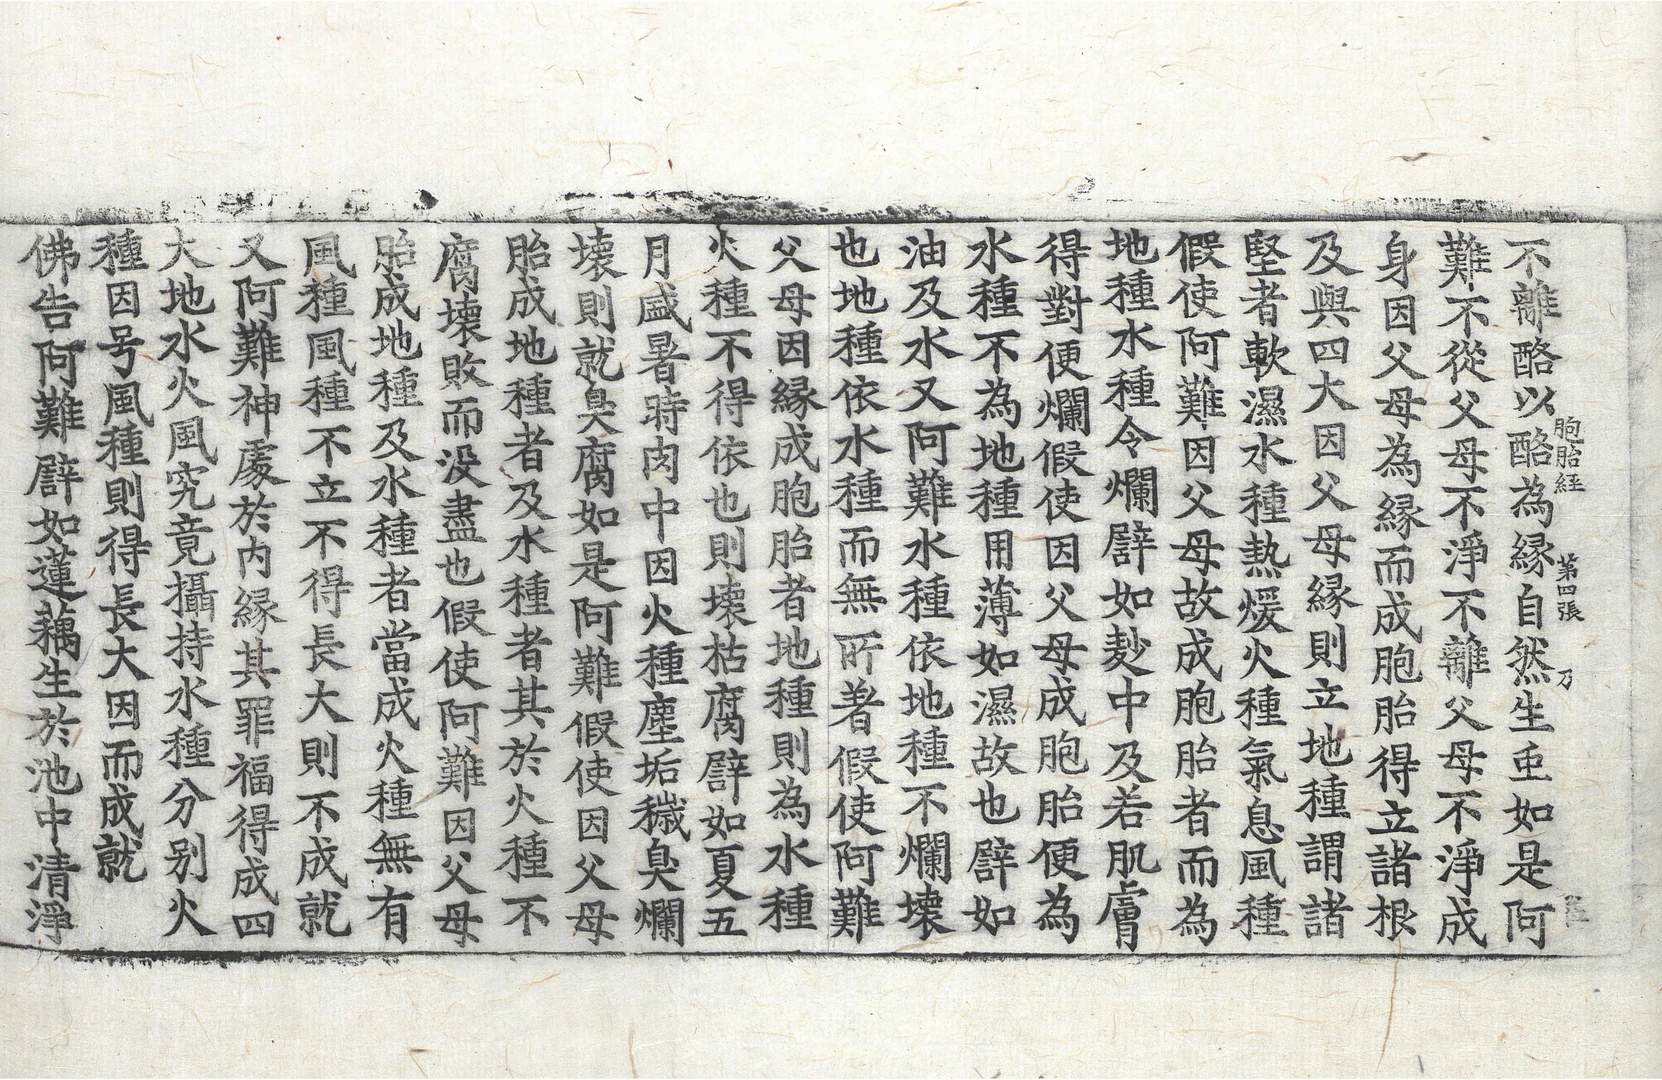 胞胎経 第四張 乃
不離酪以酪為縁自然生虫如是阿
難不從父母不淨不離父母不淨成
身因父母為縁而成胞胎得立諸根
及與四大因父母縁則立地種謂諸
堅者軟濕水種熱煖火種氣息風種
假使阿難因父母故成胞胎者而為
地種水種令爛譬如麨中及若肌膚
得對便爛假使因父母成胞胎便為
水種不為地種用薄如濕故也譬如
油及水又阿難水種依地種不爛壞
也地種依水種而無所著假使阿難
父母因縁成胞胎者地種則為水種
火種不得依也則壞枯腐譬如夏五
月盛暑時肉中因火種塵垢穢臭爛
壞則就臭腐如是阿難假使因父母
胎成地種者及水種者其於火種不
腐壞敗而没盡也假使阿難因父母
胎成地種及水種者當成火種無有
風種風種不立不得長大則不成就
又阿難神處於内縁其罪福得成四
大地水火風究竟攝持水種分别火
種因号風種則得長大因而成就
佛告阿難譬如蓮藕生於池中清淨